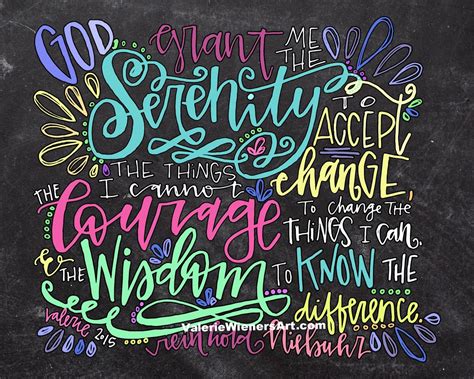 GOD grant ME THE
Serenity TO
ACCEPT
THE THINGS
I cannot CHANGE,
THE Courage To CHANGE THE
THINGS I CAN,
& THE Wisdom TO KNOW THE
difference.
Valerie, 2015
ValerieWienersArt.com
reinhold Niebuhr